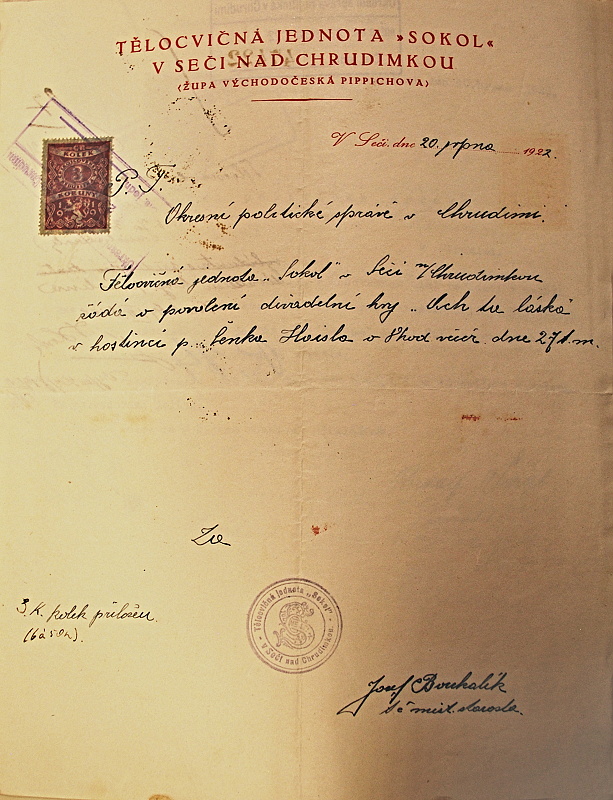 TĚLOCVIČNÁ JEDNOTA »SOKOL«
V SEČI NAD CHRUDIMKOU
(ŽUPA VÝCHODOČESKÁ PIPPICHOVA)
V Seči, dne 20. srpna 1922.
3
KORUNY
P. T.
Okresní politické správě v Chrudimi.
Tělocvičná jednota „Sokol" v Seči n/Chrudimkou
žádá o povolení divadelní hry „Ach ta láska
v hostinci p. Čeňka Haisla o 8 hod večer. dne 27 t. m.
Za
3 K. kolek přiložen.
(6 á 50h).
Tělocvičná jednota „Sokol"
v Seči nad Chrudimkou.
Josef Boukalík
t. č. míst. starosta.